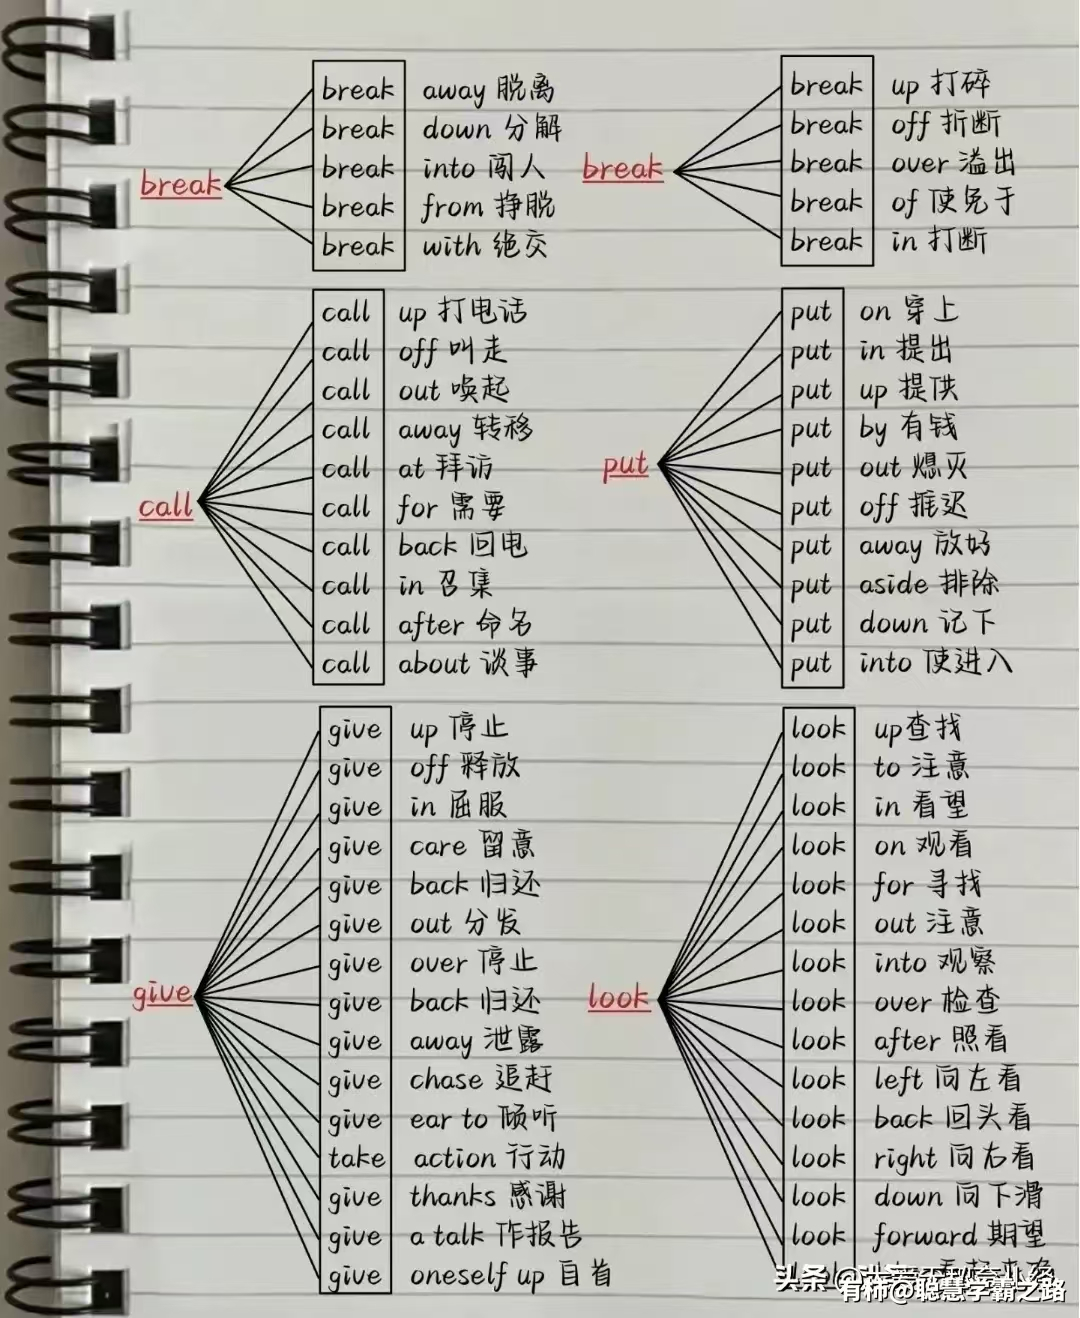 break
break away 脱离
break down 分解
break into 闯人
break from 挣脱
break with 绝交
break
break up 打碎
break off 折断
break over 溢出
break of 使免于
break in 打断
call
call up 打电话
call off 叫走
call out 唤起
call away 转移
call at 拜访
call for 需要
call back 回电
call in 召集
call after 命名
call about 谈事
put
put on 穿上
put in 提出
put up 提供
put by 有钱
put out 熄灭
put off 推迟
put away 放好
put aside 排除
put down 记下
put into 使进入
give
give up 停止
give off 释放
give in 屈服
give care 留意
give back 归还
give out 分发
give over 停止
give back 归还
give away 泄露
give chase 追赶
give ear to 倾听
take action 行动
give thanks 感谢
give a talk 作报告
give oneself up 自首
look
look up查找
look to 注意
look in 看望
look on 观看
look for 寻找
look out 注意
look into 观察
look over 检查
look after 照看
look left 向左看
look back 回头看
look right 向右看
look down 向下滑
look forward 期望
头条
有柿@聪慧学霸之路